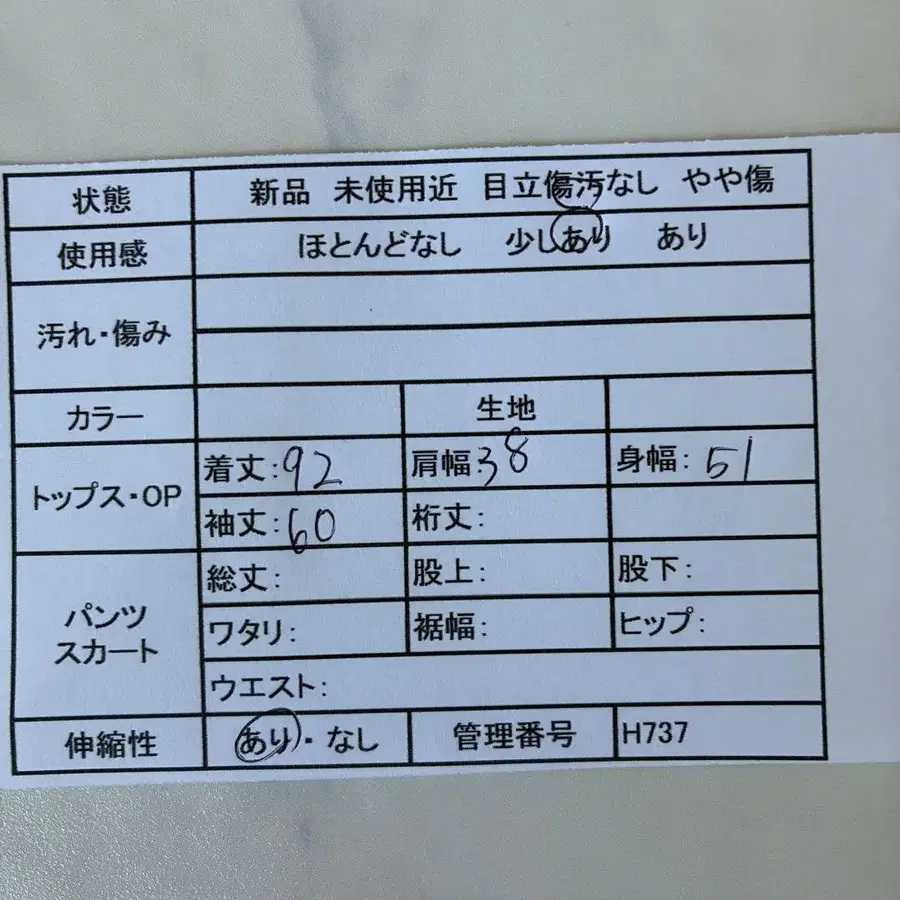 状態 新品 未使用近 目立傷汚なし やや傷
使用感 ほとんどなし 少しあり あり
汚れ・傷み
カラー 生地
トップス・OP 着丈:92 肩幅:38 身幅:51
袖丈:60 裄丈:
パンツ スカート 総丈: 股上: 股下:
ワタリ: 裾幅: ヒップ:
ウエスト:
伸縮性 あり・なし 管理番号 H737